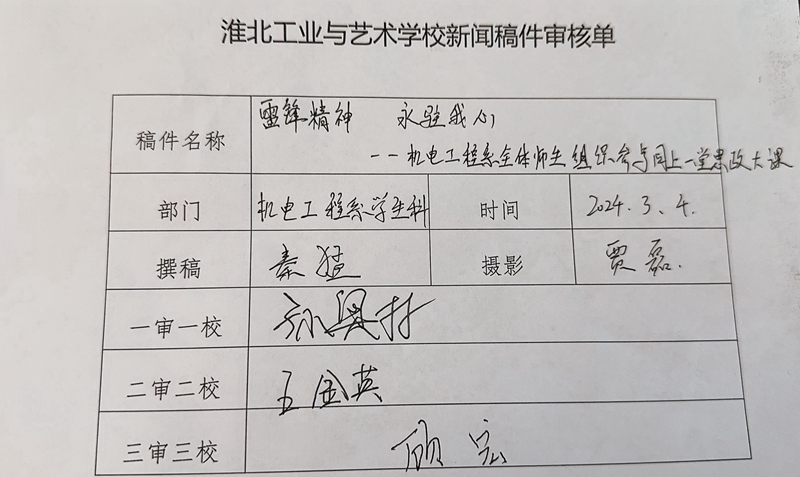 淮北工业与艺术学校新闻稿件审核单
稿件名称
雷锋精神 永驻我心
--机电工程系全体师生组织参与同上一堂思政大课
部门 机电工程系学生科 时间 2024.3.4.
撰稿 秦猛 摄影 贾磊.
一审一校
二审二校 王金英
三审三校 顾宏